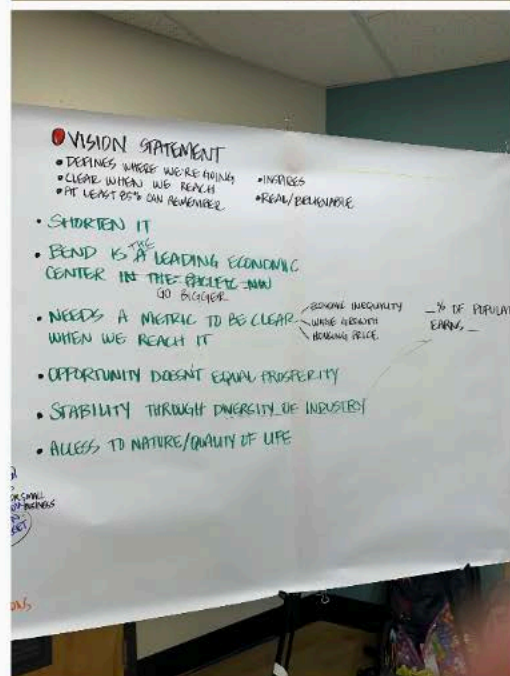 VISION STATEMENT
• DEFINES WHERE WE'RE GOING • INSPIRES
• CLEAR WHEN WE REACH • REAL/BELIEVABLE
• AT LEAST 85% CAN REMEMBER
• SHORTEN IT
THE
• BEND IS A LEADING ECONOMIC
CENTER IN THE PACIFIC NW
GO BIGGER
• NEEDS A METRIC TO BE CLEAR
WHEN WE REACH IT
ECONOMIC INEQUALITY
WAGE GROWTH
HOUSING PRICE
_% OF POPULAT
EARNS _
• OPPORTUNITY DOESN'T EQUAL PROSPERITY
• STABILITY THROUGH DIVERSITY OF INDUSTRY
• ACCESS TO NATURE/QUALITY OF LIFE
SMALL
BUSINESS